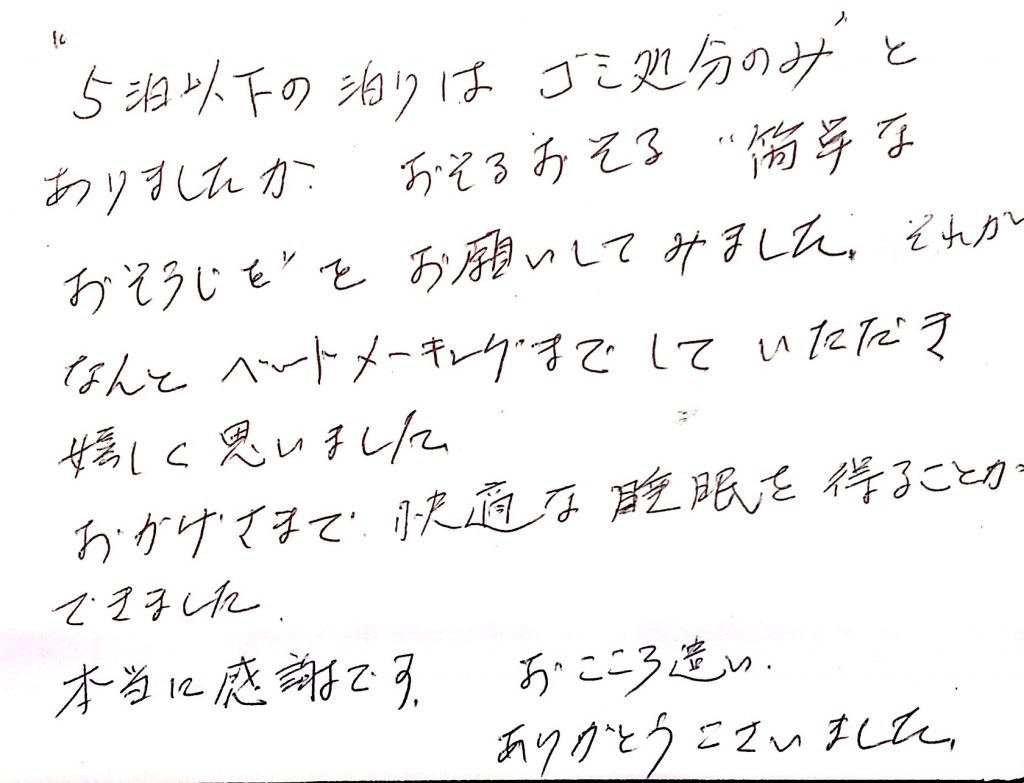 “5泊以下の泊りは ゴミ処分のみ”と
ありましたが、おそるおそる “簡単な
おそうじを”と お願いしてみました。それが
なんと ベットメーキングまでして いただき
嬉しく思いました。
おかげさまで、快適な 睡眠を 得ることが
できました。
本当に感謝です。 おこころ遣い、
ありがとうございました。